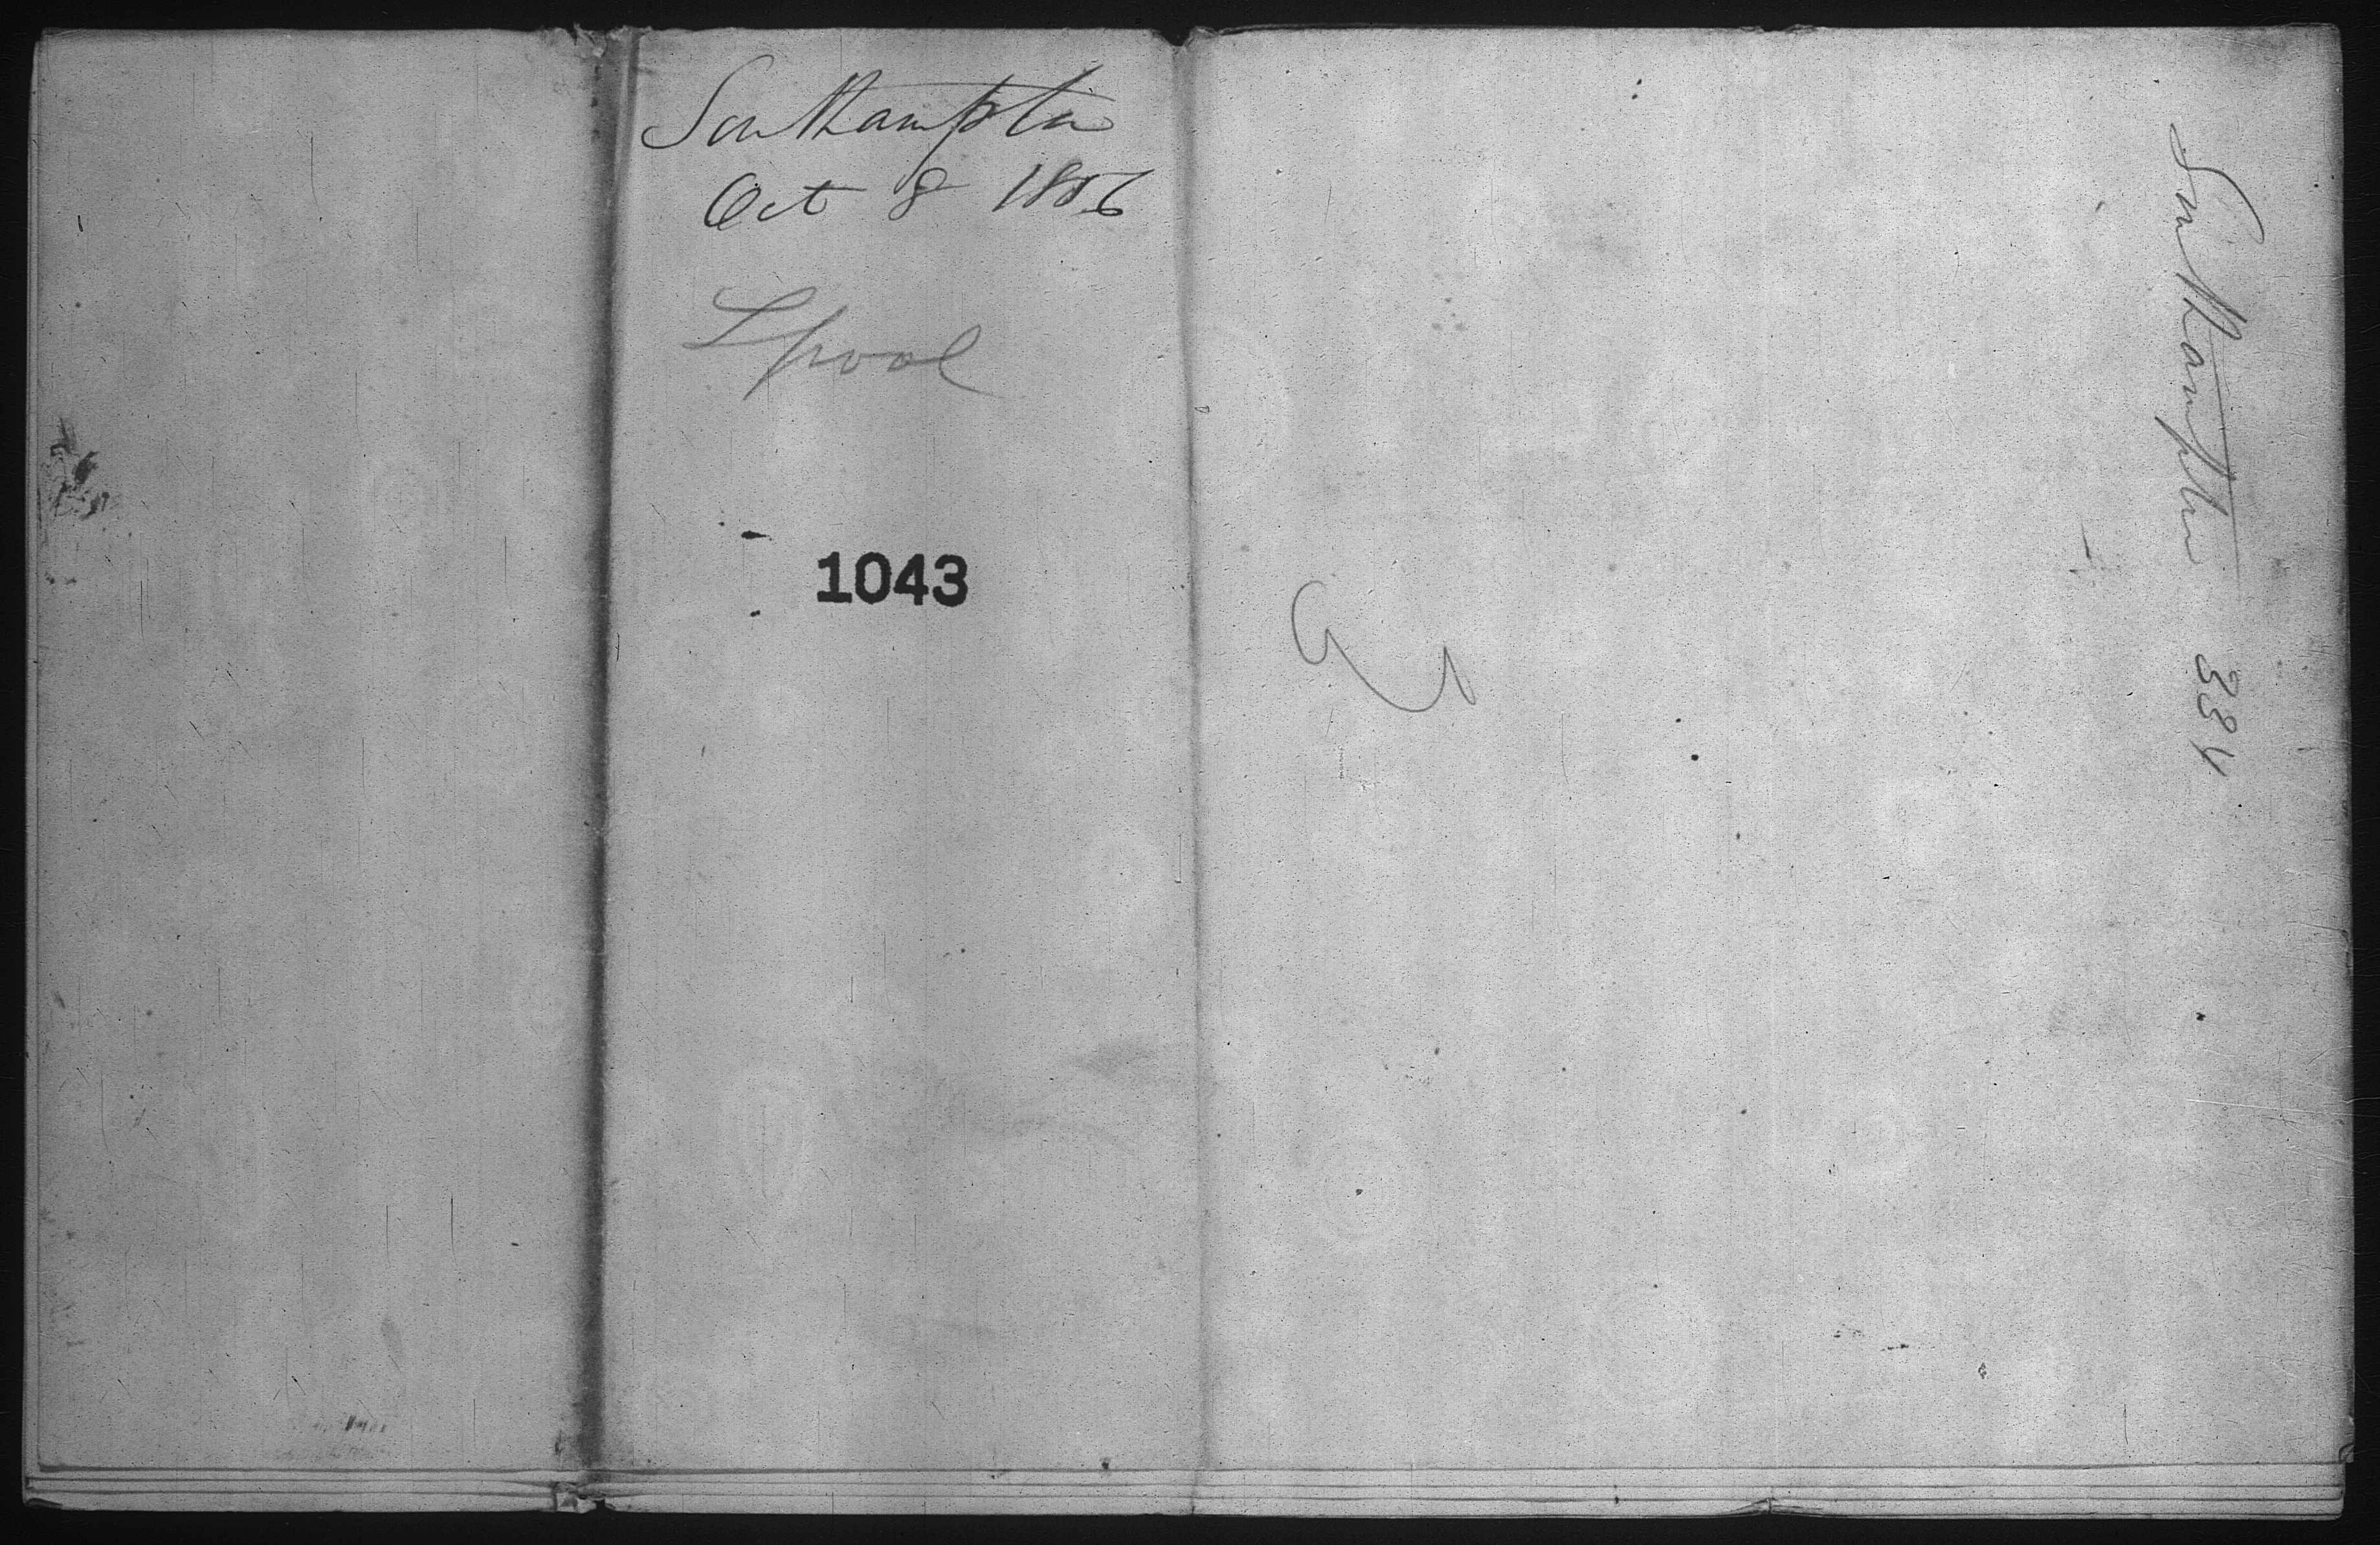 Southampton
Oct 8 1856
Lpool
1043
Southampton 334